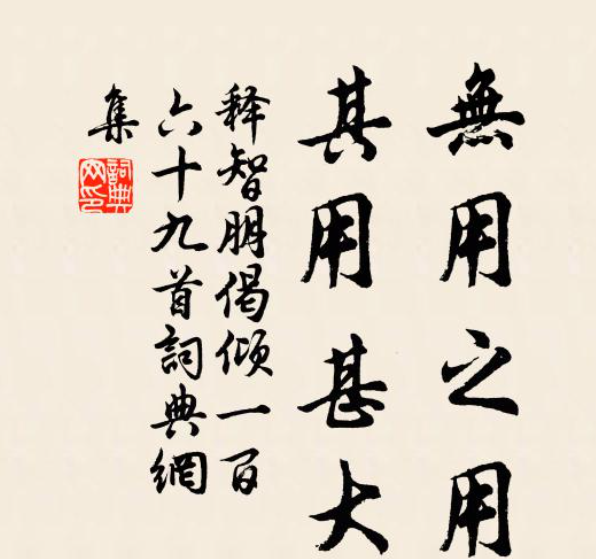 無用之用
其用甚大
释智朋偈倾一百
六十九首詞典網
集
詞典網印